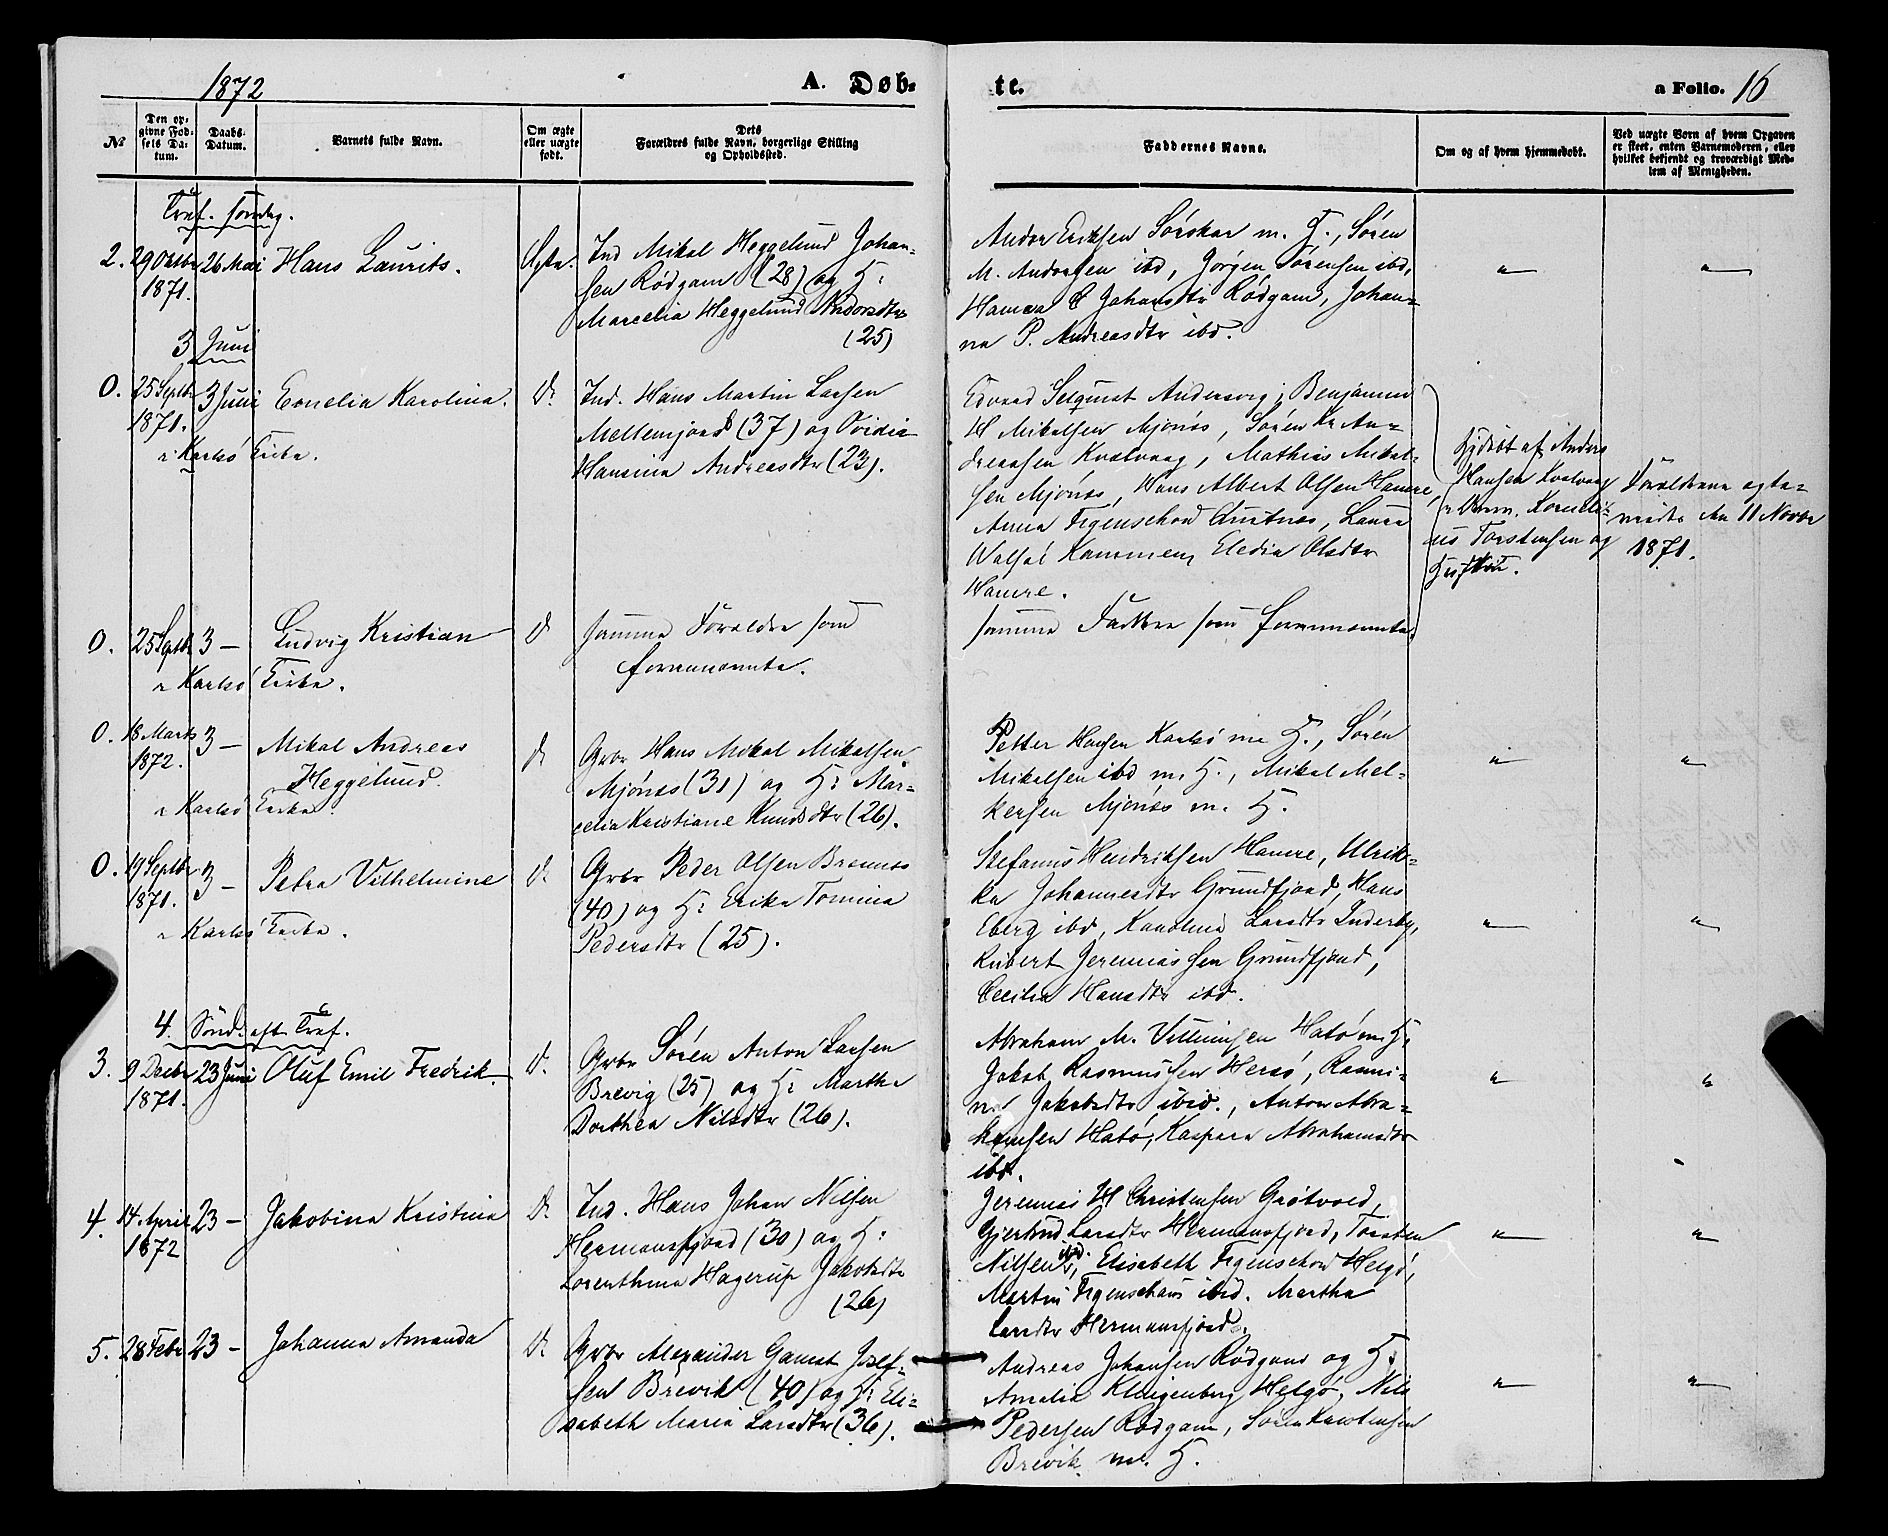 1872 A. Døb- te. a Folio. 16
№
Den op-
givne Fød-
sels Da-
tum.
Daabs-
Datum.
Barnets fulde Navn.
Om ægte
eller uægte
født.
Dets
Forældres fulde Navn, borgerlige Stilling
og Opholdssted.
Faddernes Navne.
Om og af hvem hjemmedøbt.
Ved uægte Børn af hvem Opgaven
er skeet, enten Barnemoderen, eller
hvilket bekjendt og troværdigt Med-
lem af Menigheden.
Tref. søndag.
2. 29 Oktbr 26 Mai Hans Laurits. Ægte.
1871.
Ind Mikal Heggelund Johan-
sen Rødgam (28) og H:
Marcelia Heggelund Andorsdtr
(25)
Andor Eriksen Sørskar m. H., Søren
M. Andorsen ibd, Jørgen Sørensen ibd,
Hansea Johansdtr Rødgam, Johan-
na P. Andreasdtr ibd.
" "
3 Juni
0. 25 Septbr 3 Juni Cornelia Karolina. D.
1871.
i Karlsø Kirke.
Ind. Hans Martin Larsen
Mellemjord (37) og Ovidia
Hansina Andreasdtr (23).
Edvard Selqvist Andersvig, Benjamin
H Mikalsen Mjønæs, Søren Kr An-
dreassen Kvalvaag, Mathias Mikal-
sen Mjønæs, Hans Albert Olsen Hamre,
Anna Figenschou, Laura
Hammen, Eledia Olsdtr
Hamre.
Hjdøbt af Anders
Hansen Kvalvaag
Korneli-
us Torstensen og
Forældrene ægte-
viedes den 11 Novbr
1871.
0. 25 Septbr 3 — Ludvig Kristian D
i Karlsø Kirke.
samme Forældre som
fornævnte.
samme Faddere som fornævnte.
0. 18 Marts 3 — Mikal Andreas D
1872.
Heggelund.
i Karlsø Kirke.
Gbr Hans Mikal Mikalsen
Mjønæs (31) og H: Mar-
celia Kristiane Knudsdtr (26).
Petter Hansen Karlsø m H., Søren
Mikalsen ibd m. H., Mikal Mel-
kersen Mjønæs m. H.
" "
0. 19 Septbr 3 — Petra Vilhelmine D.
1871.
i Karlsø Kirke.
Gbr Peder Olsen Bremnes
(40) og H: Erika Tomina
Pedersdtr (25).
Stefanus Hendriksen Hamre, Ulrik-
ka Johannesdtr Grundfjord, Hans
Eberg ibd, Karolina Larsdtr Inderby,
Rubert Jeremiassen Grundfjord,
Cecilia Hansdtr ibd.
" "
4. Sønd. eft Tref.
3. 9 Decbr 23 Juni Oluf Emil Fredrik. D.
1871.
Gbr Søren Anton Larsen
Brevig (25) og H: Martha
Dorthea Nilsdtr (26).
Abraham M. Vilhumsen Hatø m H,
Jakob Rasmussen Hersø, Rasmi-
ne Jakobsdtr ibid., Anton Abra-
hamsen Hatø, Kaspara Abrahamsdtr
ibd.
" "
4. 14 April 23 — Jakobina Kristina D.
1872
Ind. Hans Johan Nilsen
Hermansfjord (30) og H:
Lorenthina Hagerup Jakobsdtr
(26)
Jeremias H Christensen Grøtvold,
Gjertrud Larsdtr Hermansfjord, Torsten
Nilsen ibd., Elisabeth Figenschou Helgø,
Martin Figenschau ibid. Martha
Larsdtr Hermansfjord.
" "
5. 28 Febr 23 — Johanna Amanda D.
Gbr Alexander Gamst Josef-
sen Brevik (40) og H: Eli-
sabeth Maria Larsdtr (36).
Andreas Johansen Rødgam og H.
Amalia Klingenberg Helgø, Nils
Pedersen Rødgam, Søren Karstensen
Brevik m. H.
" "